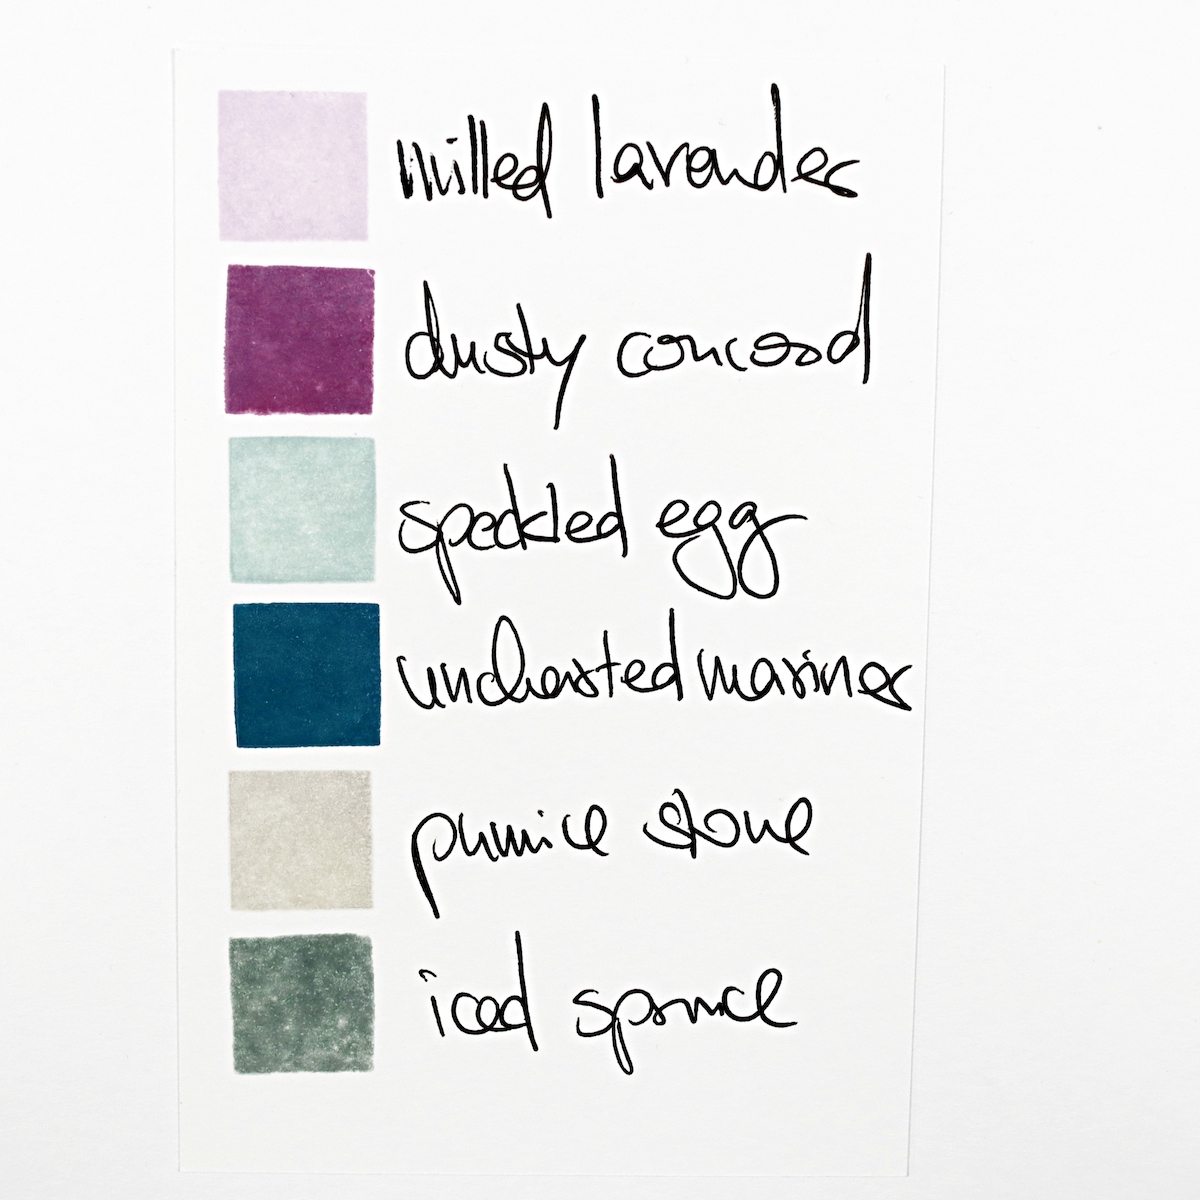 milled lavender
dusty concord
speckled egg
uncharted mariner
pumice stone
iced spruce